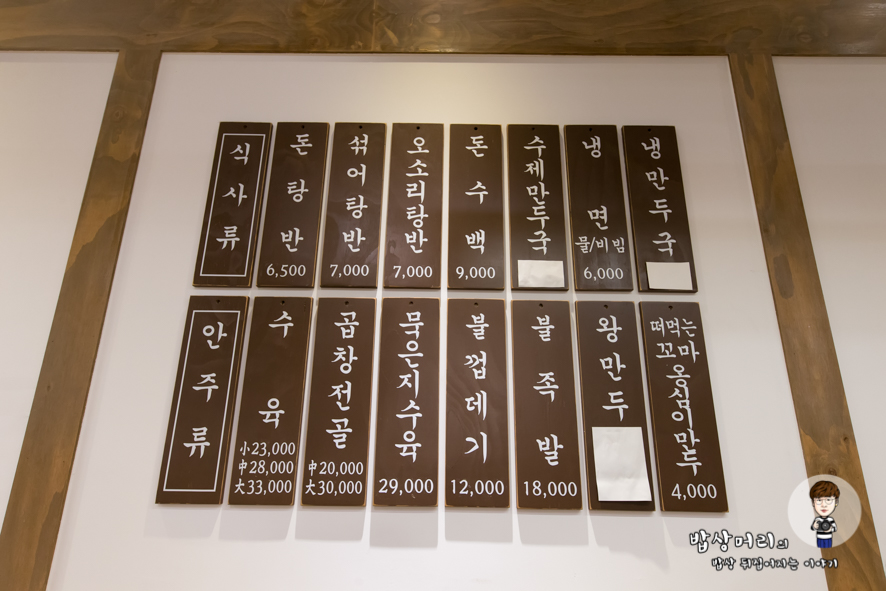 식사류
돈탕반
6,500
섞어탕반
7,000
오소리탕반
7,000
돈수백
9,000
수제만두국
냉면
물/비빔
6,000
냉만두국
안주류
수육
小 23,000
中 28,000
大 33,000
곱창전골
中 20,000
大 30,000
묵은지수육
29,000
불껍데기
12,000
불족발
18,000
왕만두
떠먹는
꼬마
옹심이만두
4,000
밥상머리의
밥상 뒤집어지는 이야기